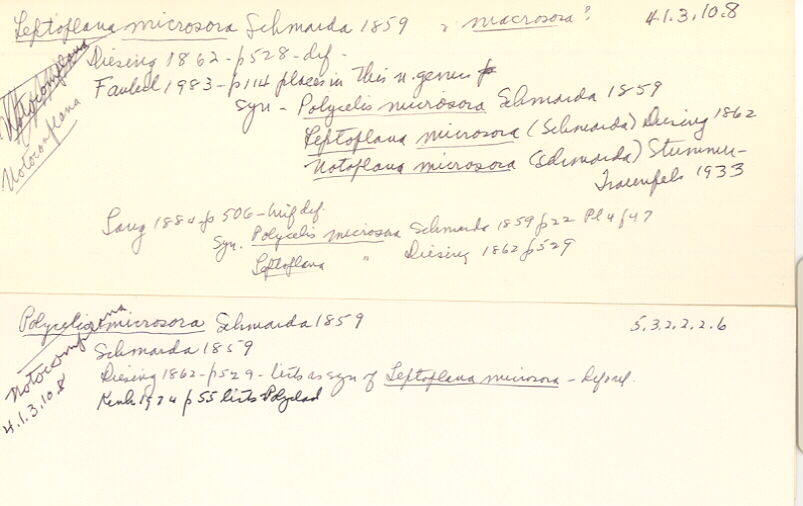 Leptoplana microsora Schmarda 1859 & macrosora? 4.1.3.10.8
Notocomplana
Notocomplana
Diesing 1862-p528-def.
Faubel 1983-p114 places in this n. genus
Syn- Polycelis microsora Schmarda 1859
Leptoplana microsora (Schmarda) Diesing 1862
Notoplana microsora (Schmarda) Stummer-
Traunfels 1933
Lang 1884-p 506-brief def.
Syn. Polycelis microsora Schmarda 1859 p22 Pl 4 f 47
Leptoplana " Diesing 1862 p529
Polycelis microsora Schmarda 1859 5.3.2.2.2.6
Notocomplana
4.1.3.10.8
Schmarda 1859
Diesing 1862-p529-lists as syn of Leptoplana microsora -
Kenk 1974 p 55 lists Polyclad